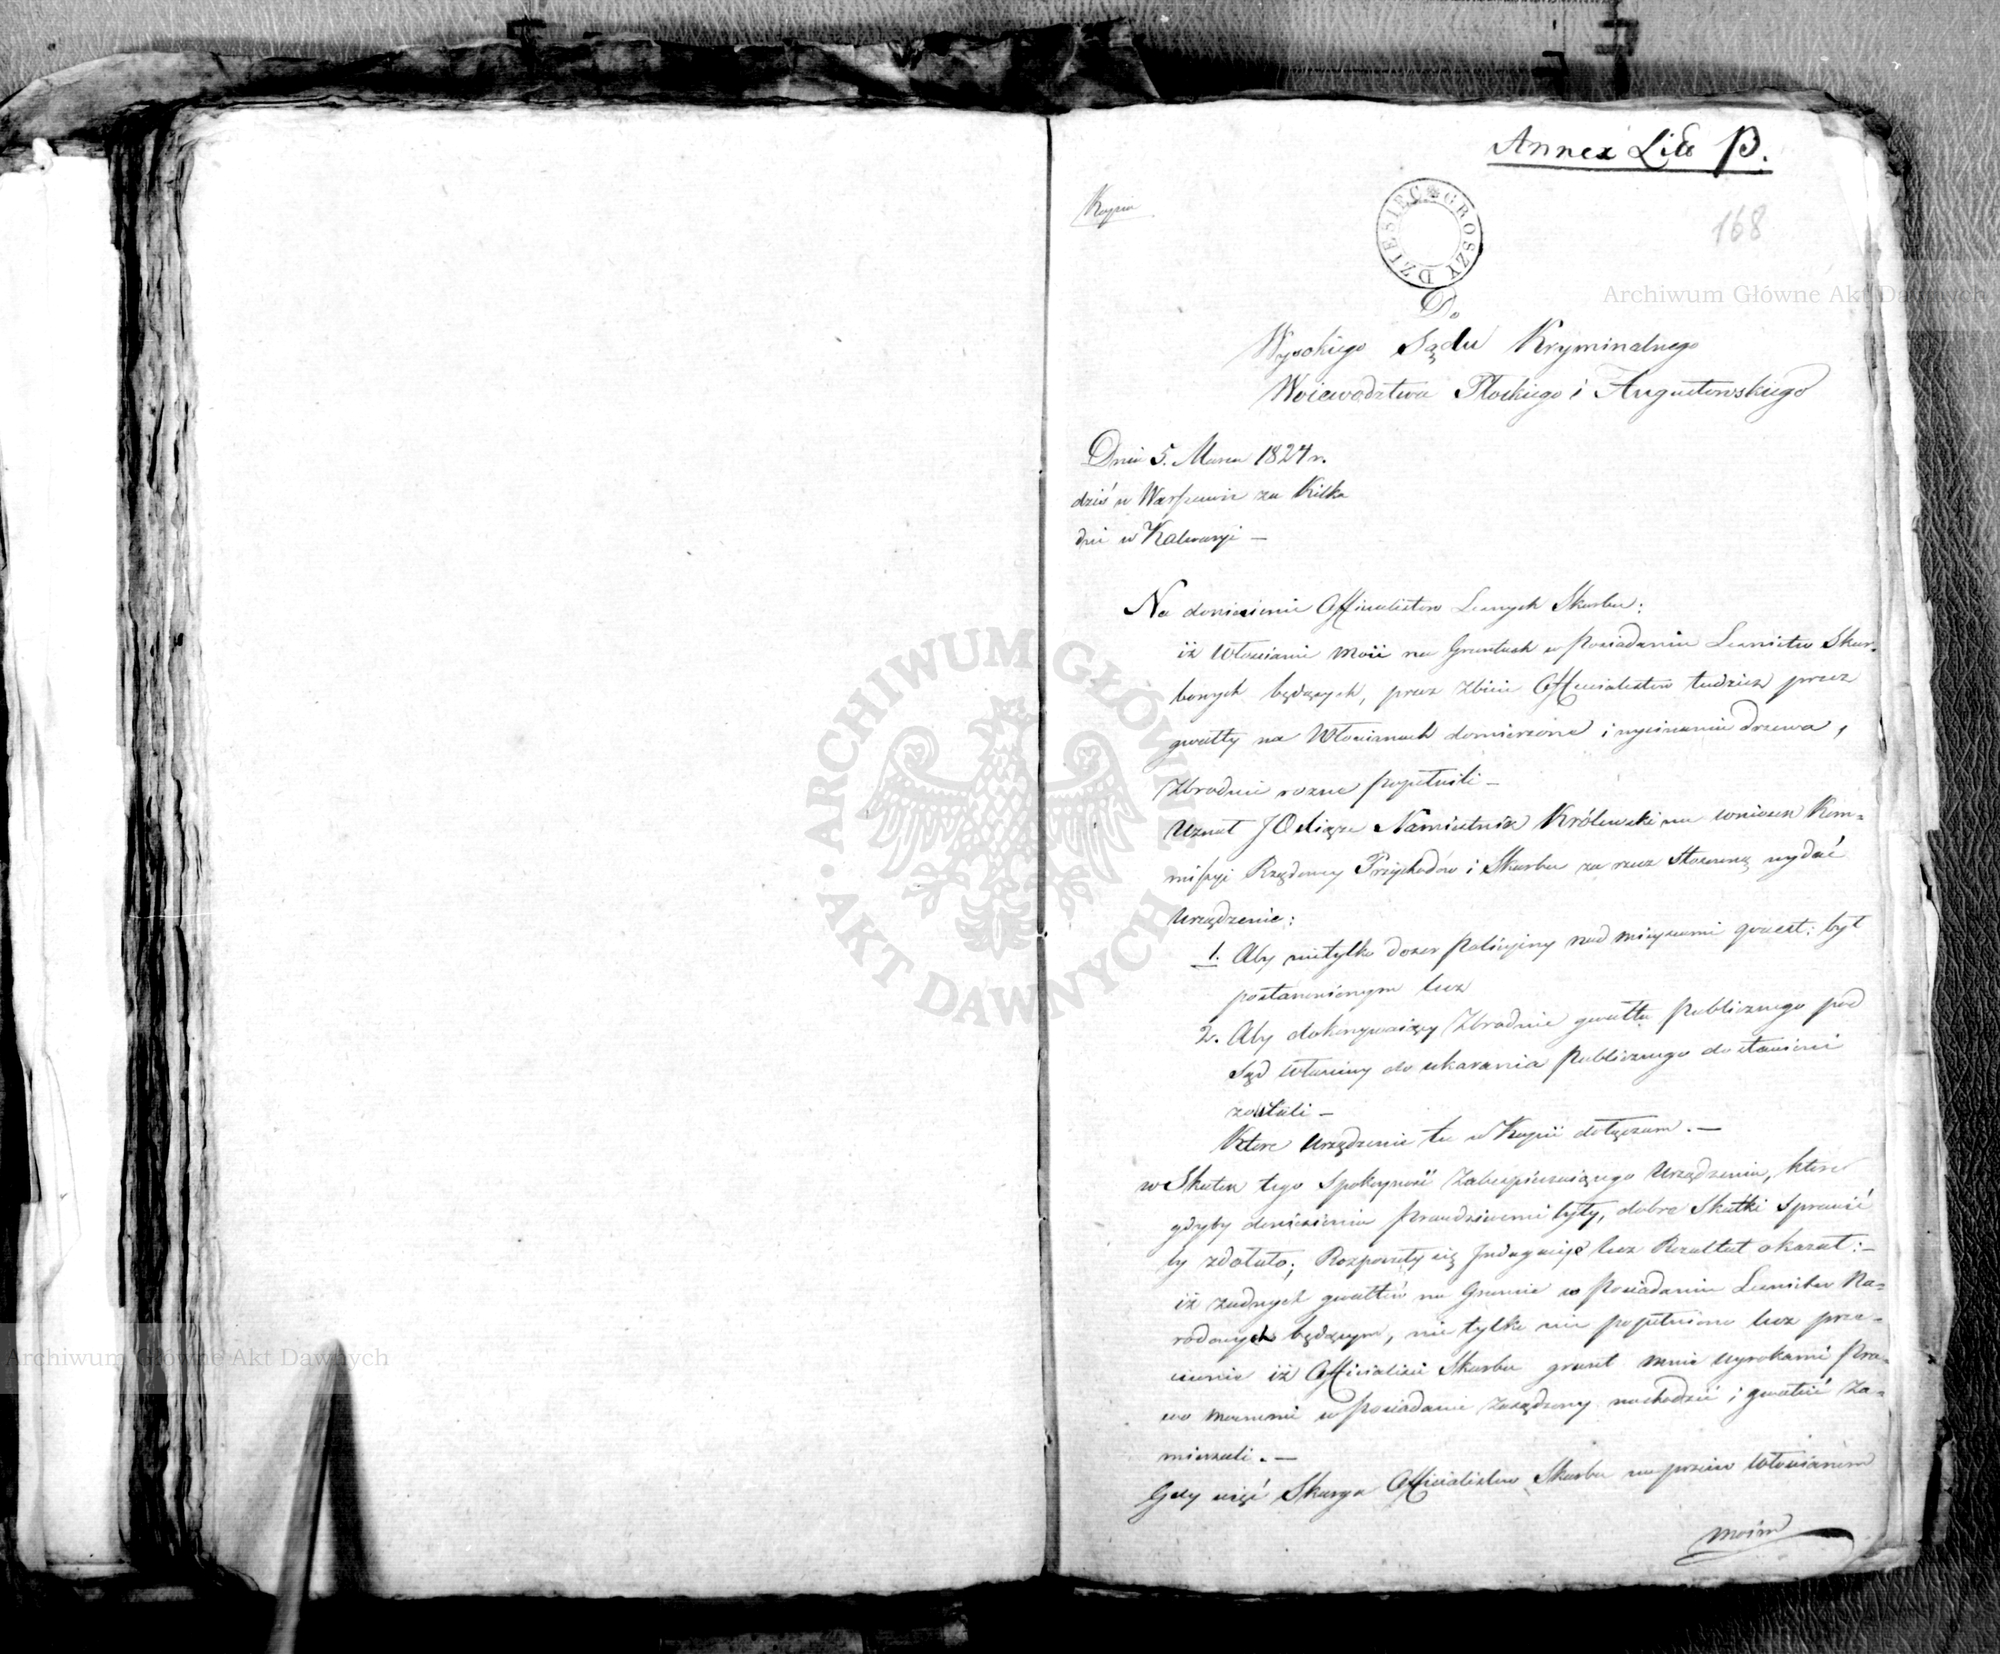 Annex Lit B.
Kopia
168
DZIESIĘC GROSZY
Do
Wysokiego Sądu Kryminalnego
Woiewodztwa Płockiego i Augustowskiego
Dnia 5. Marca 1824 r.
dziś w Warszawie za kilka
dni w Kalwaryi —
Na doniesienie Officialistow Lesnych Skarbu:
iż Włościanie moii na Gruntach w Posiadaniu Lesnictw Skar-
bowych będących, przez Zbicie Officialistow tudzież przez
gwałty na Włościanach domierzone i wycinanie drzewa,
Zbrodnie rozne popełnili —
Uznał JO Xiąże Namiestnik Królewski na wniosek Kom-
missyi Rządowey Przychodów i Skarbu za rzecz Stosowną wydać
Urządzenie:
1. Aby nietylko dozor Policyiny nad mieyscami quaest: był
postanowionym lecz
2. Aby dokonywaiący Zbrodnie gwałtu Publicznego pod
Sąd Właściwy do ukarania Publicznego dostawieni
zostali —
Ktore Urządzenie tu w Kopii dołączam. —
w Skutek tego Spokoyność Zabespieczaiącego Urządzenia, ktore
gdyby doniesienia Prawdziwemi były, dobre Skutki Sprawić
by zdołało; Rozpoczęły się Indagacyie lecz Rezultat okazał: —
iż żadnych gwałtów na Gruncie w Posiadaniu Lesnictw Na-
rodowych będącym, nie tylko nie popełniono lecz prze-
ciwnie iż Officialisci Skarbu grunt mnie wyrokami Pra-
wo mocnemi w Posiadanie Zasądzony nachodzić i gwałcić Za-
mierzali. —
Gdy więć Skarga Officialistow Skarbu naprzeciw Włościanom
moim
ARCHIWUM GŁÓWNE AKT DAWNYCH
Archiwum Główne Akt Dawnych
Archiwum Główne Akt Dawnych